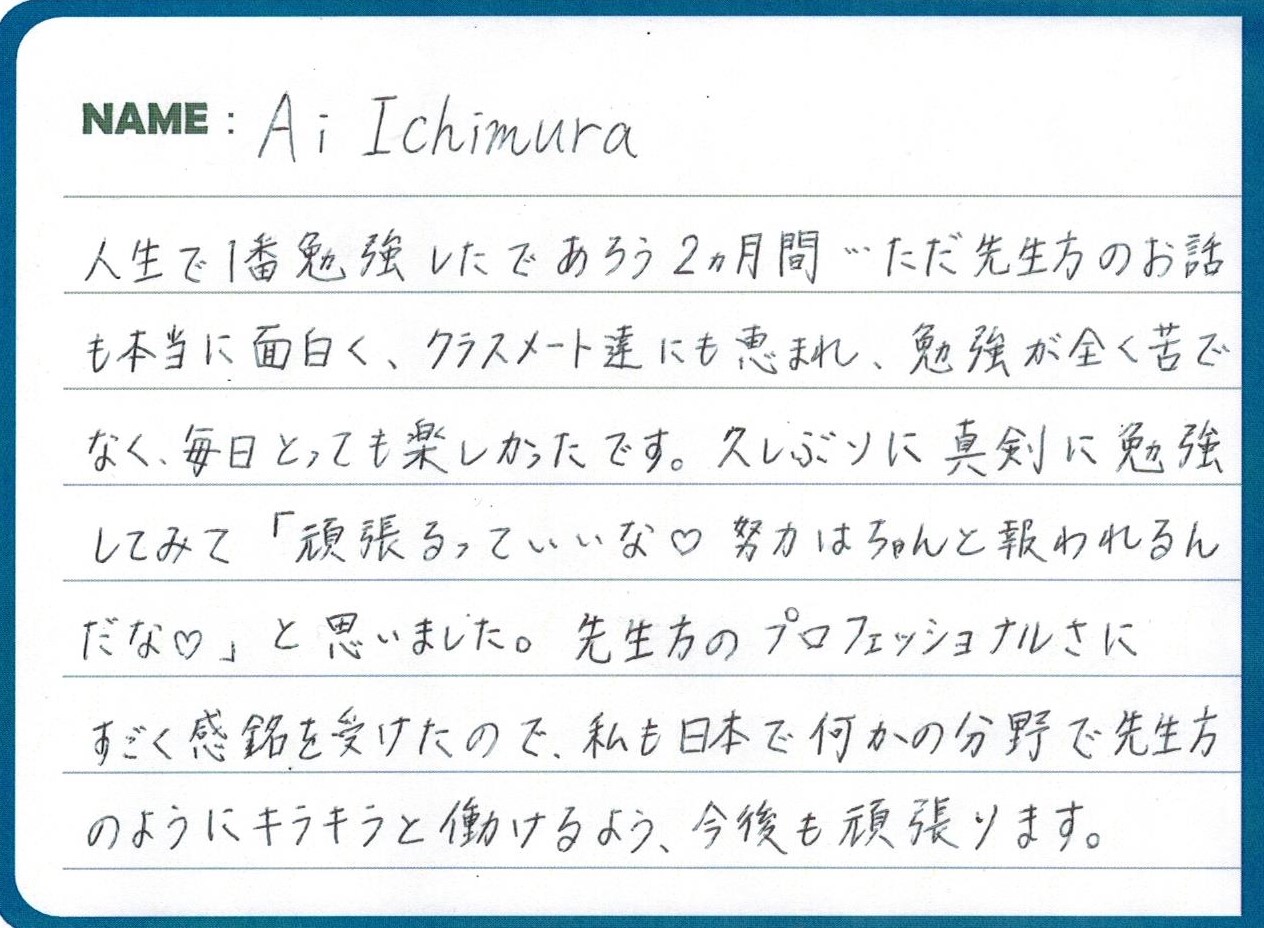 NAME : Ai Ichimura
人生で1番勉強したであろう2ヵ月間…ただ先生方のお話
も本当に面白く、クラスメート達にも恵まれ、勉強が全く苦で
なく、毎日とっても楽しかったです。久しぶりに真剣に勉強
してみて「頑張るっていいな♡努力はちゃんと報われるん
だな♡」と思いました。先生方のプロフェッショナルさに
すごく感銘を受けたので、私も日本で何かの分野で先生方
のようにキラキラと働けるよう、今後も頑張ります。